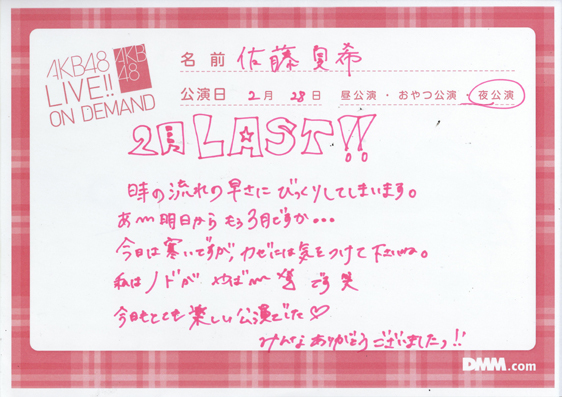 AKB48
LIVE!!
ON DEMAND
AKB
48
名前 佐藤夏希
公演日 2月 28日 昼公演・おやつ公演・夜公演
2月LAST!!
時の流れの早さにびっくりしてしまいます。
あ〜明日からもう3月ですか...
今日は寒いですが、カゼには気をつけて下さいね。
私はノドが やば〜 です 笑
今日もとても楽しい公演でした♡
みんなありがとうございましたっ!!
DMM.com